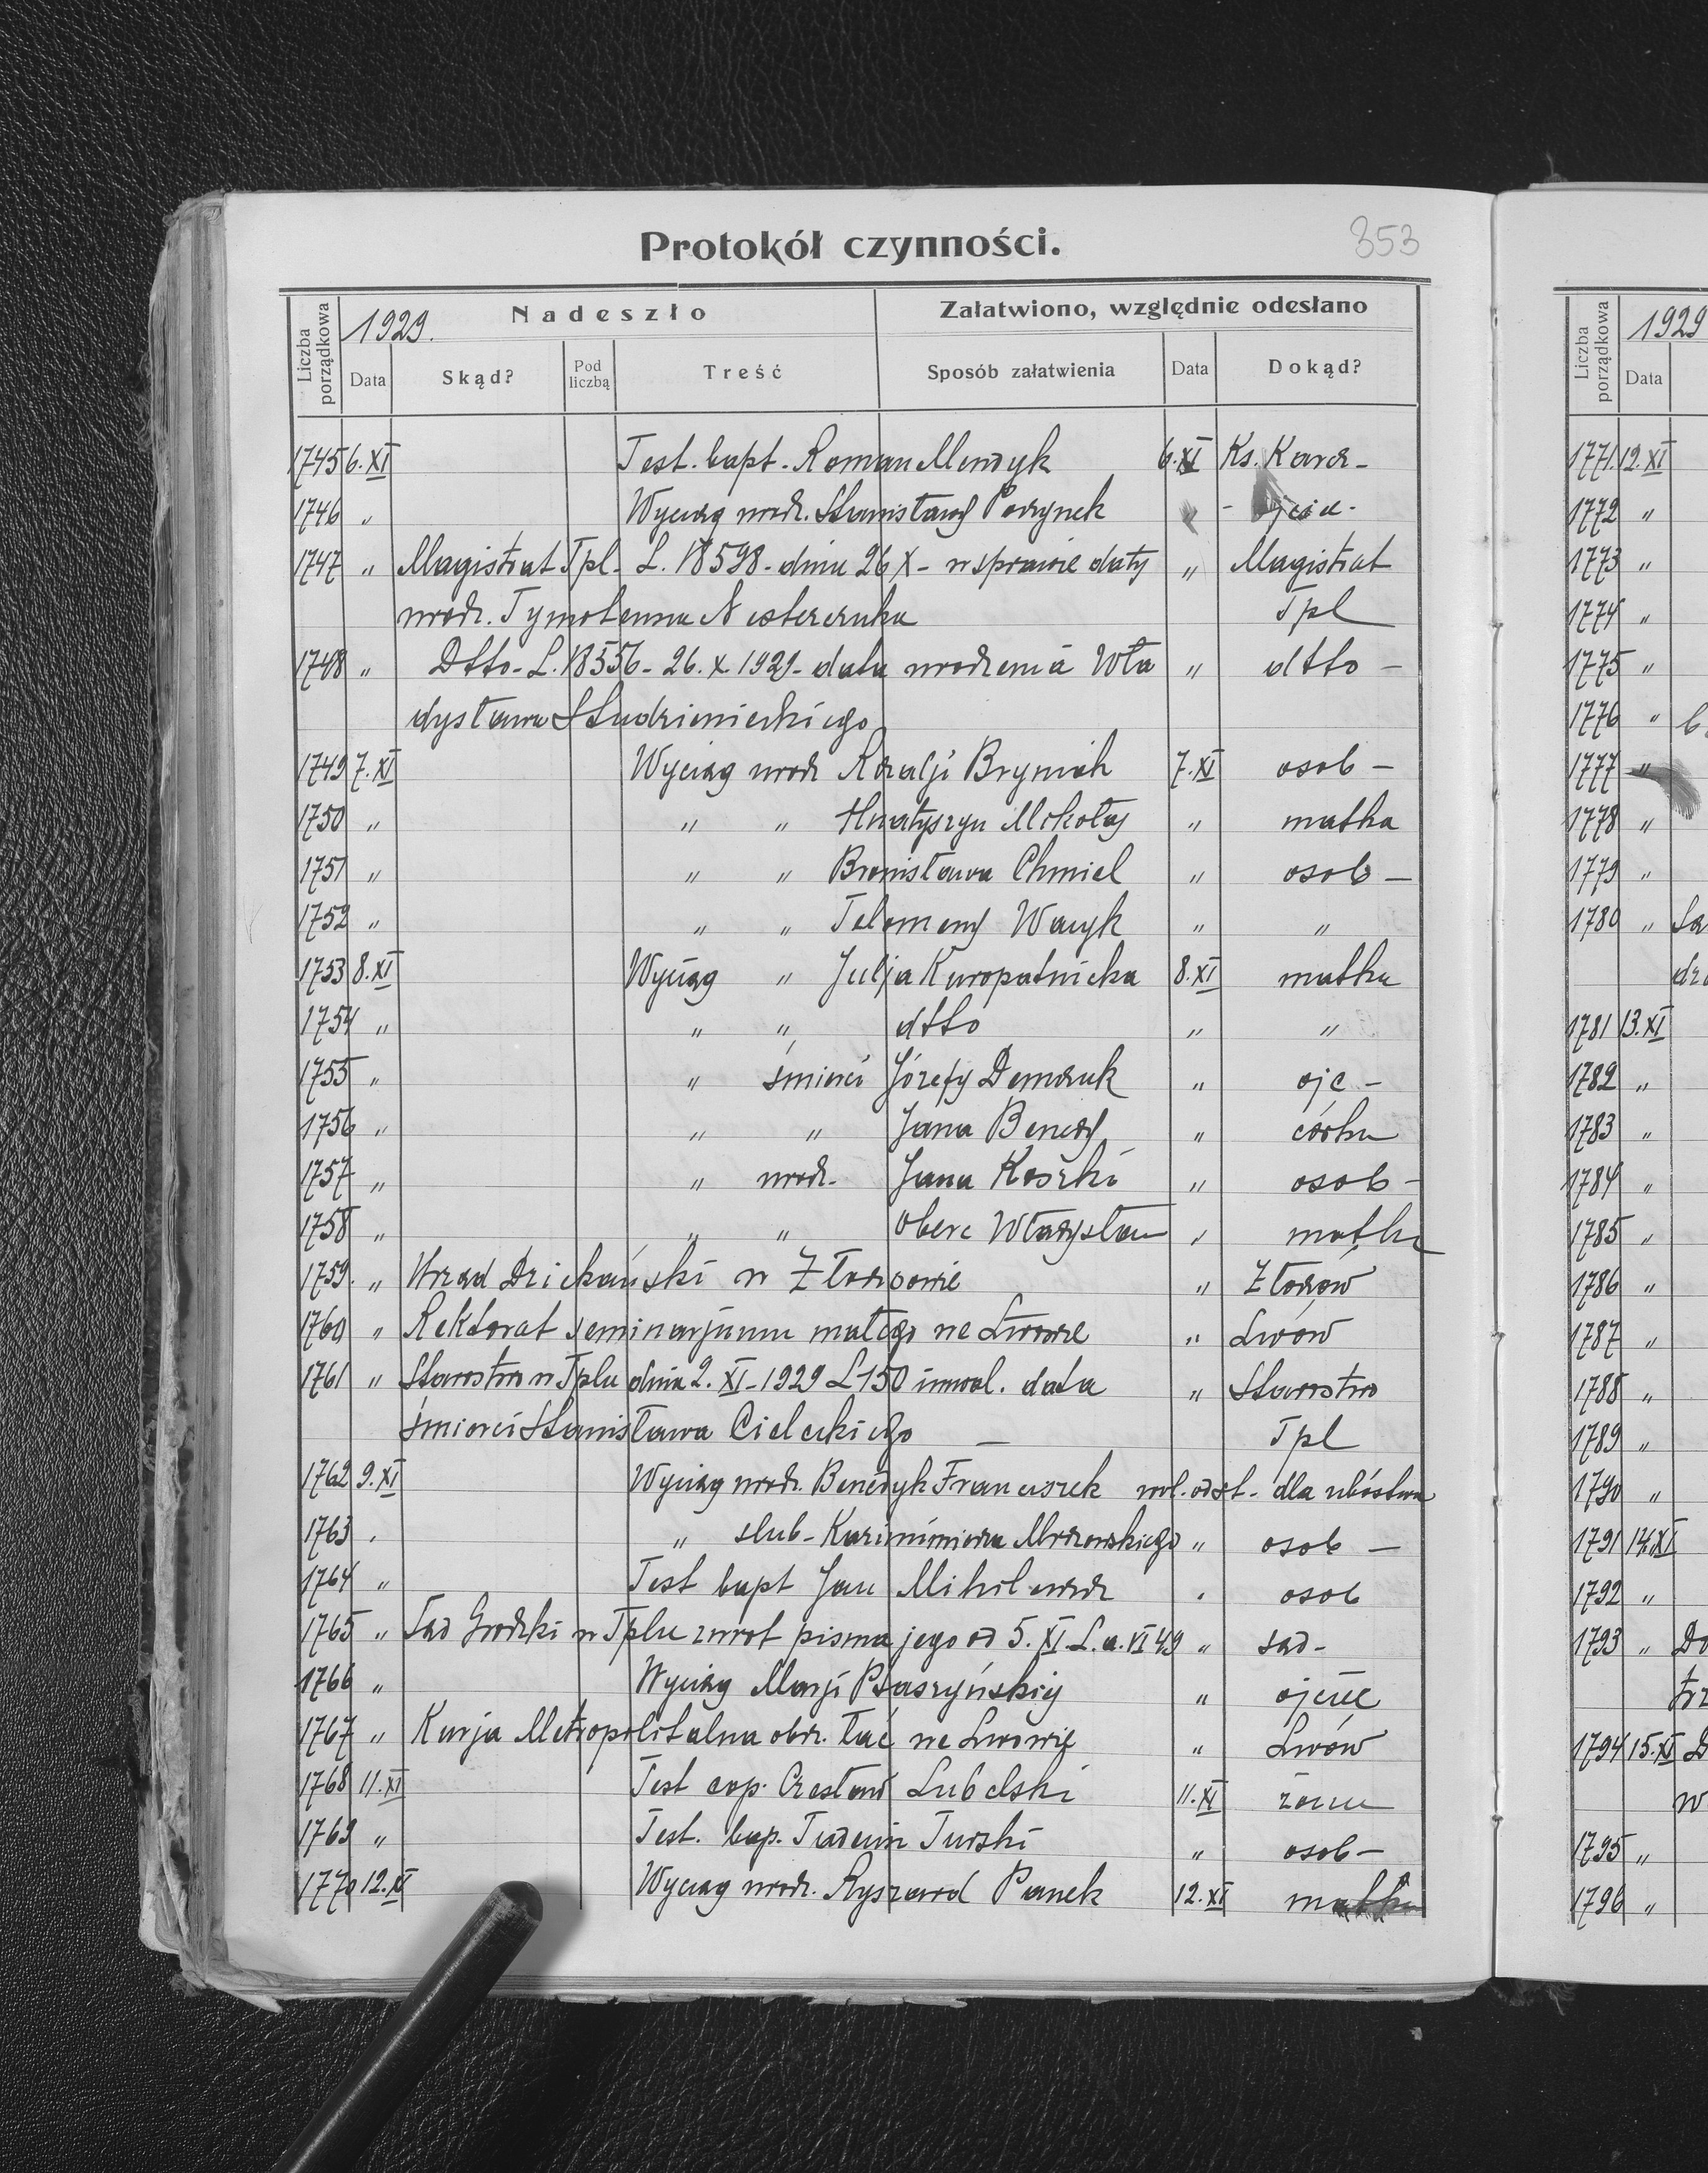 Protokół czynności.
353
Liczba porządkowa
1929.
Nadeszło
Załatwiono, względnie odesłano
Data
Skąd?
Pod liczbą
Treść
Sposób załatwienia
Data
Dokąd?
1745 6.XI Test. bapt. Roman Mendyk 6.XI Ks.
1746 " Wyciąg urodz. Podrynek -
1747 " Magistrat Tpl. L. 18598 - dnia 26 X - w sprawie daty " Magistrat
urodz. Nestereruka Tpl
1748 " Dtto - L. 18556 - 26.X 1929 - data urodzenia Wła " dtto -
dysława Studzienieckiego
1749 7.XI Wyciąg urodz Rozalji Bryniak 7.XI osob -
1750 " " " Hnatyszyn Mikołaj " matka
1751 " " " Bronisława Chmiel " osob -
1752 " " " Wacyk " "
1753 8.XI Wyciąg " Julja Kuropatnicka 8.XI matka
1754 " " " dtto " "
1755 " " śmierci Józefy Demczuk " ojc -
1756 " " " Jana " córka
1757 " " urodz. Jana Koszki " osob -
1758 " " " Oberc Władysław " matka
1759. " Urząd Dziekański w Złoczowie " Złoczów
1760 " Rektorat seminarjum małego we Lwowie " Lwów
1761 " Starostwo w Tplu dnia 2.XI - 1929 L 150 inwal. data " Starostwo
śmierci Stanisława Cieleckiego - Tpl
1762 9.XI Wyciąg urodz. Benedyk Franciszek dla ubóstwa
1763 " " slub - Mrozowskiego " osob -
1764 " Test bapt Jan " osob
1765 " Sąd Grodzki w Tplu zwrot pisma jego od 5.XI. L. a. VI 49 " sąd -
1766 " Wyciąg Marji Ptaszyńskiej " ojciec
1767 " Kurja Metropolitalna obrz. łać we Lwowie " Lwów
1768 11.XI Test cop. Czesław Lubelski 11.XI
1769 " Test. bap. Tadeusz Turski " osob -
1770 12.XI Wyciąg urodz. Ryszard Panek 12.XI matka
Liczba porządkowa
1929
Data
1771. 12.XI
1772 "
1773 "
1774 "
1775 "
1776 "
1777 "
1778 "
1779 "
1780 "
1781 13.XI
1782 "
1783 "
1784 "
1785 "
1786 "
1787 "
1788 "
1789 "
1790 "
1791 14.XI
1792 "
1793 "
1794 15.XI
1795 "
1796 "